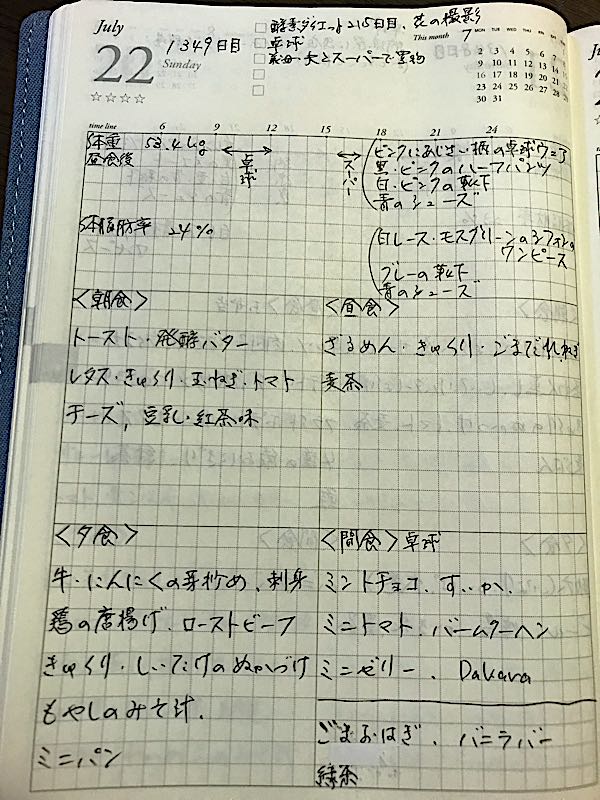 July
22
Sunday
1349日目
☆☆☆☆
酵素ダイエット215日目、花の撮影
卓球
夫とスーパーで買物
This month 7
MON TUE WED THU FRI SAT SUN
2 3 4 5 6 7 8
9 10 11 12 13 14 15
16 17 18 19 20 21 22
23 24 25 26 27 28 29
30 31
time line 6 9 12 15 18 21 24
体重 53.4kg
昼食後
卓球
スーパー
ピンクにあじさい柄の卓球ウェア
黒・ピンクのハーフパンツ
白・ピンクの靴下
青のシューズ
体脂肪率 24%
白レース・モスグリーンのシフォンの
ワンピース
グレーの靴下
青のシューズ
<朝食>
トースト・発酵バター
レタス・きゅうり・玉ねぎ・トマト
チーズ, 豆乳・紅茶味
<昼食>
ざるめん・きゅうり・ごまだれ、ねぎ
麦茶
<夕食>
牛・にんにくの芽炒め、刺身
鶏の唐揚げ、ローストビーフ
きゅうり・しいたけのぬかづけ
もやしのみそ汁、
ミニパン
<間食> 卓球
ミントチョコ、すいか、
ミニトマト、バームクーヘン
ミニゼリー、Dakara
ごまおはぎ、バニラバー
緑茶